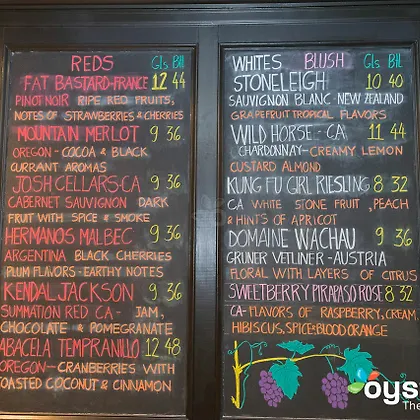 REDS Gls Btl
FAT BASTARD-FRANCE 12 44
PINOT NOIR RIPE RED FRUITS,
NOTES OF STRAWBERRIES & CHERRIES
MOUNTAIN MERLOT 9 36
OREGON - COCOA & BLACK
CURRANT AROMAS
JOSH CELLARS-CA 9 36
CABERNET SAUVIGNON DARK
FRUIT WITH SPICE & SMOKE
HERMANOS MALBEC 9 36
ARGENTINA BLACK CHERRIES
PLUM FLAVORS - EARTHY NOTES
KENDAL JACKSON 9 36
SUMMATION RED CA- JAM,
CHOCOLATE & POMEGRANATE
ABACELA TEMPRANILLO 12 48
OREGON- CRANBERRIES WITH
TOASTED COCONUT & CINNAMON
WHITES BLUSH Gls Btl
STONELEIGH 10 40
SAUVIGNON BLANC - NEW ZEALAND
GRAPEFRUIT TROPICAL FLAVORS
WILD HORSE - CA 11 44
CHARDONNAY - CREAMY LEMON
CUSTARD ALMOND
KUNG FU GIRL RIESLING 8 32
CA WHITE STONE FRUIT, PEACH
& HINTS OF APRICOT
DOMAINE WACHAU 9 36
GRUNER VETLINER - AUSTRIA
FLORAL WITH LAYERS OF CITRUS
SWEETBERRY PIRAPASO ROSE 8 32
CA- FLAVORS OF RASPBERRY, CREAM,
HIBISCUS, SPICE & BLOOD ORANGE
oys
The